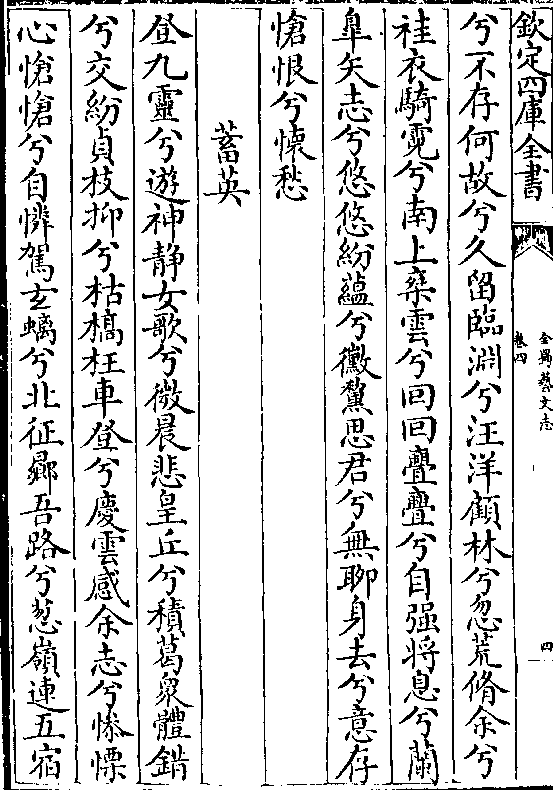 欽定四庫全書
全蜀藝文志
卷四
四
兮不存何故兮久留臨淵兮汪洋顧林兮忽荒脩余兮
袿衣騎霓兮南上椉雲兮回回亹亹兮自强將息兮蘭
臯矢志兮悠悠紛蘊兮黴黧思君兮無聊身去兮意存
愴恨兮懐愁
蓄英
登九靈兮遊神静女歌兮微晨悲皇丘兮積葛衆體錯
兮交紛貞枝抑兮枯槁枉車登兮慶雲感余志兮慘慄
心愴愴兮自憐駕玄螭兮北征曏吾路兮葱嶺連五宿